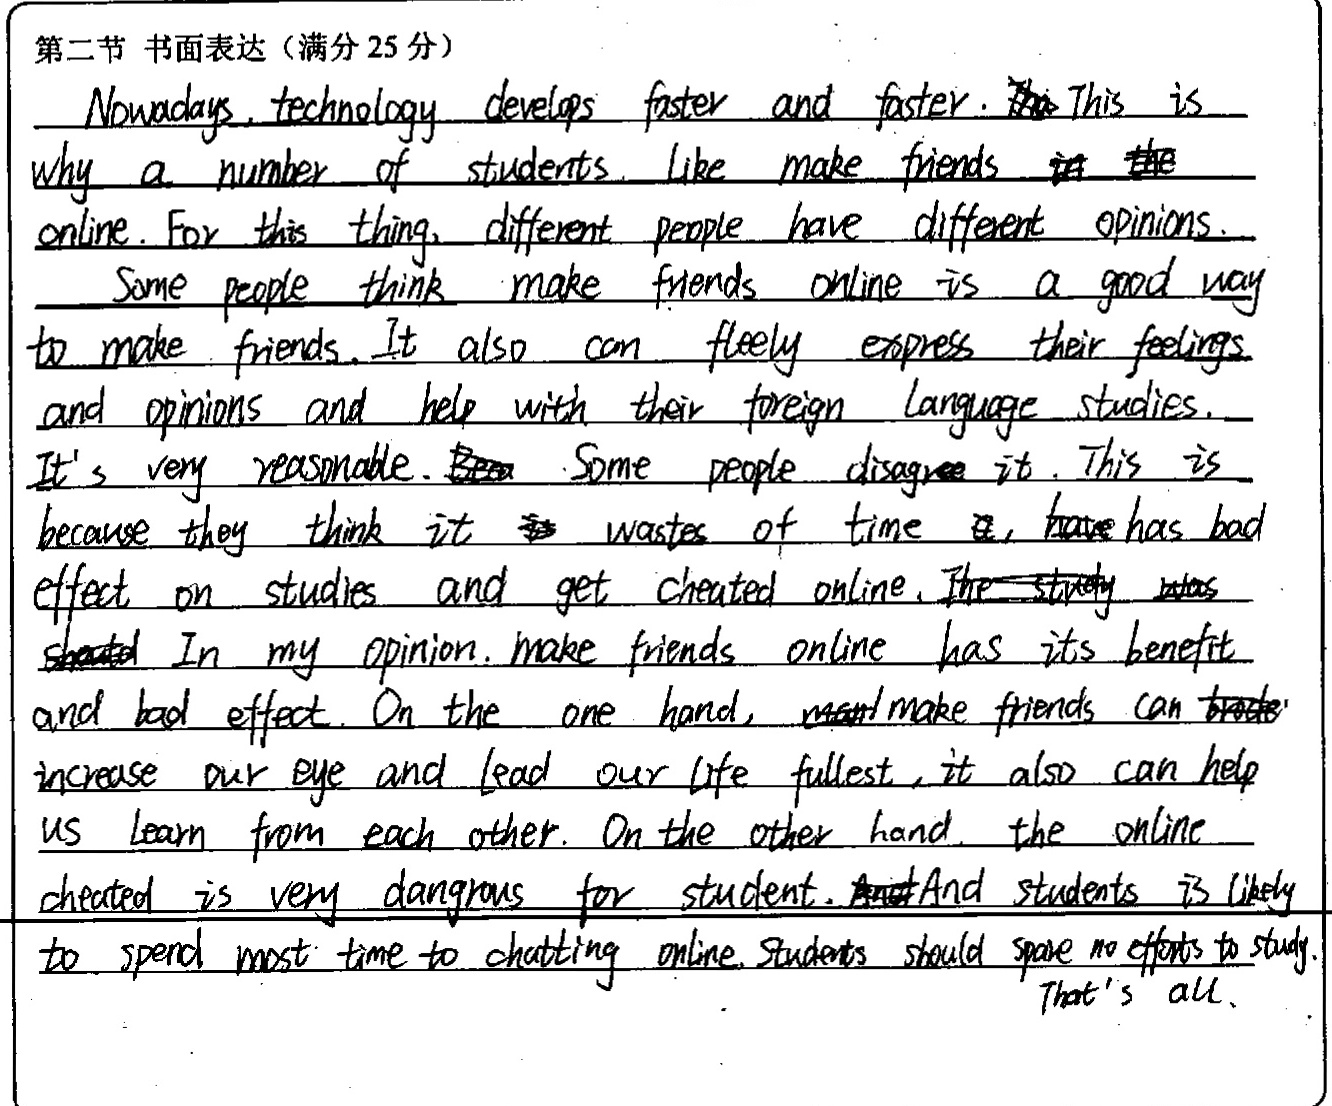 第二节 书面表达（满分 25 分）
Nowadays, technology develops faster and faster. This is
why a number of students like make friends in the
online. For this thing, different people have different opinions.
Some people think make friends online is a good way
to make friends. It also can fleely express their feelings
and opinions and help with their foreign language studies.
It's very reasonable. Some people disagree it. This is
because they think it is wastes of time, have has bad
effect on studies and get cheated online. The study was
In my opinion, make friends online has its benefit
and bad effect. On the one hand, make friends can
increase our eye and lead our life fullest, it also can help
us learn from each other. On the other hand, the online
cheated is very dangrous for student. And And students is likely
to spend most time to chatting online. Students should spare no efforts to study.
That's all.